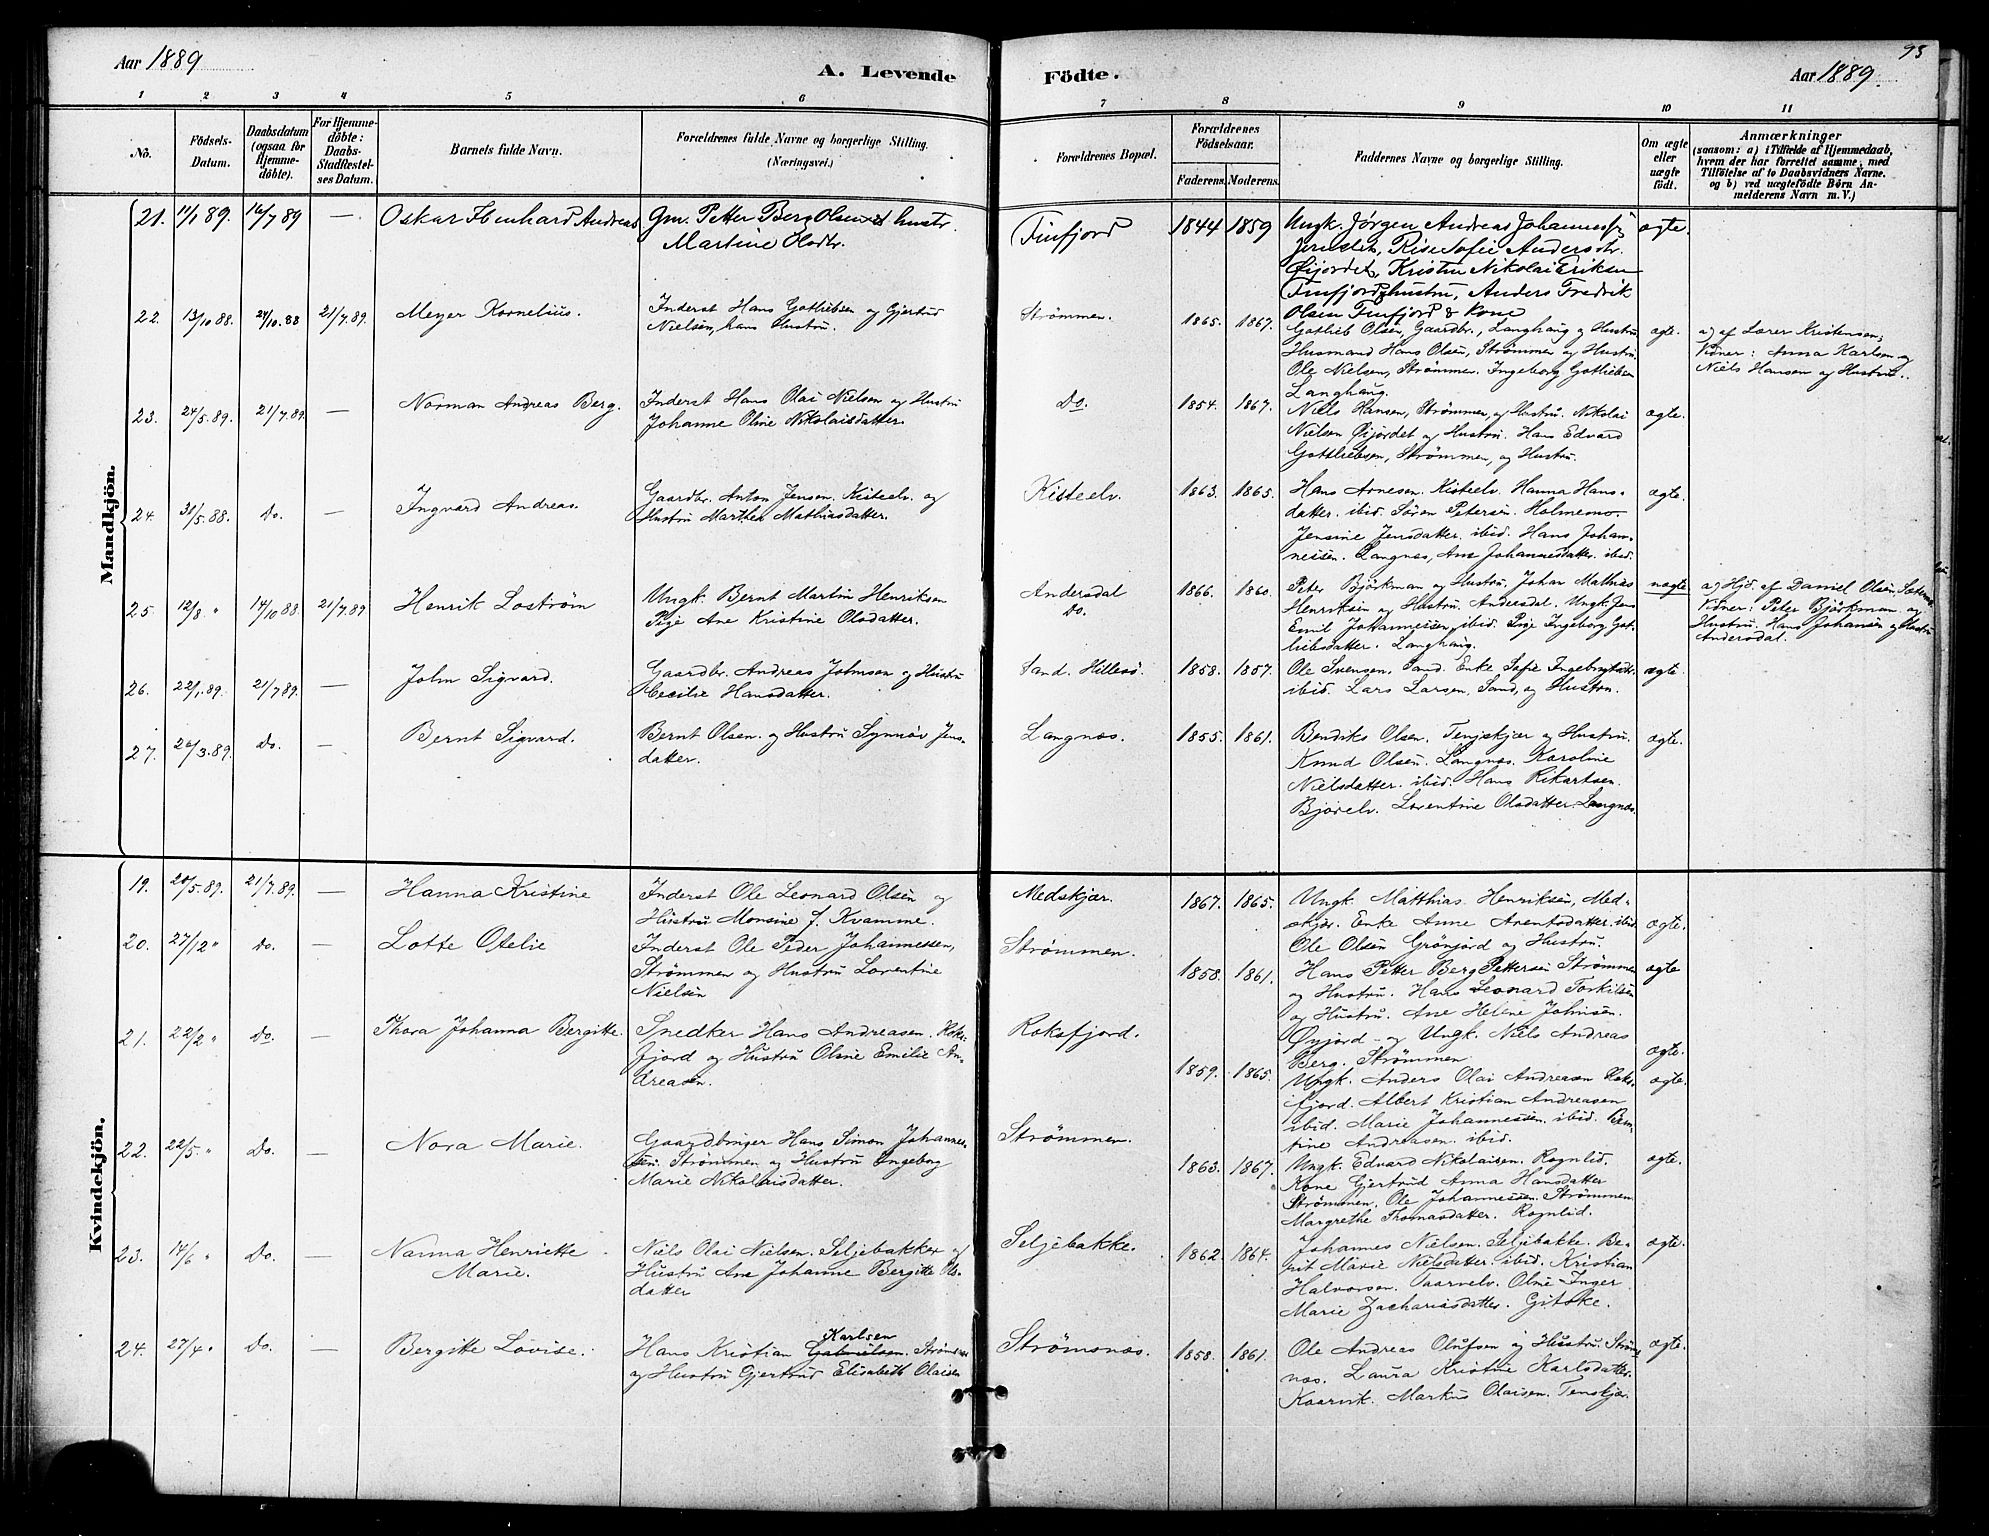 Aar 1889
A. Levende
Födte.
93
Aar 1889.
1 2 3 4 5 6 7 8 9 10 11
No.
Födsels-
Datum.
Daabsdatum
(ogsaa for
Hjemme-
döbte).
For Hjemme-
döbte:
Daabs-
Stadfæstel-
ses Datum.
Barnets fulde Navn.
Forældrenes fulde Navne og borgerlige Stilling.
(Næringsvei.)
Forældrenes Bopæl.
Forældrenes
Födselsaar.
Faderens. Moderens.
Faddernes Navne og borgerlige Stilling.
Om ægte
eller
uægte
födt.
Anmærkninger
(saasom: a) i Tilfælde af Hjemmedaab,
hvem der har forrettet samme, med
Tilföielse af to Daabsvidners Navne.
og b) ved uægtefödte Börn An-
melderens Navn m. V.)
Mandkjön.
21. 11/1 89. 16/7 89 — Oskar Edenhard Andreas
Gm. Petter Berg Olsen et hustr.
Martine Olsdtr.
Finfjord 1844 1859
Ungk. Jørgen Andreas Johannesf;
Sofie Andersdtr.
Øijordet, Kristen Nikolai Eriksen
Finfjord & hustru, Anders Fredrik
Olsen Finfjord & Kone
ægte.
22. 13/10 88. 24/10 88 21/7 89. Meyer Kornelius.
Inderst Hans Gotliebsen og Gjertrud
Nielsen, hans Hustru.
Strömmen. 1865. 1867.
Gotlieb Olsen, Gaardbr., Langhaug og Hustru
Husmand Hans Olsen, Strömmen og Hustru.
Ole Nielsen, Strömmen. Ingeborg Gotliebsen
Langhaug.
ægte.
a) af Lærer Kristensen;
Vidner: Anna Karlsen og
Niels Hansen og Hustru.
23. 24/5 89. 21/7 89. — Norman Andreas Berg.
Inderst Hans Olai Nielsen og Hustru
Johanne Oline Nikolaisdatter.
Do. 1854. 1867.
Niels Hansen, Strömmen, og Hustru. Nikolai
Nielsen Øijordet og Hustru. Hans Edvard
Gottliebsen, Strömmen, og Hustru.
ægte.
24. 31/5 88. Do. — Ingvard Andreas.
Gaardbr. Anton Jensen. Kisteelv. og
Hustru Marthea Mathiasdatter.
Kisteelv. 1863. 1865.
Hans Arnesen. Kisteelv. Hanna Hans-
datter. ibid. Sören Petersen. Holmemo.
Jensine Jensdatter. ibid. Hans Johan-
nessen. Langnæs, Ane Johannesdatter. ibid.
ægte.
25. 12/8 " 14/10 88. 21/7 89 Henrik Loström
Ungk. Bernt Martin Henriksen
Pige Ane Kristine Olsdatter.
Andersdal
Do.
1866. 1860.
Peter Björkman og Hustru, Johan Mathias
Henriksen og Hustru. Andersdal. Ungk. Jens
Emil Johannessen, ibid. Pige Ingeborg Got-
liebsdatter. Langhaug.
uægte
a) Hjd. af Daniel Olsen,
Vidner: Peter Björkman og
Hustru. Hans Johansen og Hustru
Andersdal.
26. 22/1 89. 21/7 89. — John Sigvard.
Gaardbr. Andreas Johnson og Hustru
Cecilie Hansdatter.
Sand. Hillesö. 1858. 1857.
Ole Svensen, Sand. Enke Sofie Ingebrigtsdtr.
ibid. Lars Larsen, Sand, og Hustru.
ægte.
27. 26/3 89. Do. — Bernt Sigvard.
Bernt Olsen. og Hustru Synnöv Jens-
datter.
Langnæs. 1855. 1861.
Bendiks Olsen. Tengskjær og Hustru.
Knud Olsen. Langnæs. Karoline
Nielsdatter. ibid. Hans Rikartsen
Bjorelv. Lorentine Olsdatter. Langnæs.
ægte.
Kvindekjön.
19. 20/5 89. 21/7 89. — Hanna Kristine
Inderst Ole Leonard Olsen og
Hustru Monsine f. Kvamme.
Medskjær. 1867. 1865.
Ungk. Matthias Henriksen, Med-
skjær. Enke Anne Arentsdatter. ibid.
Ole Olsen Grönjord og Hustru.
ægte.
20. 27/12 " Do. — Lotte Otelie
Inderst Ole Peder Johannessen,
Strömmen og Hustru Lorentine
Nielsen
Strömmen. 1858. 1861.
Hans Petter Berg Pettersen Strömmen
og Hustru. Hans Leonard Torkilsen
og Hustru. Ane Helene Johnsen.
Øyjord - og Ungk. Niels Andreas
Berg. Strömmen
ægte
21. 22/2 " Do — Thora Johanna Bergitte.
Snedker Hans Andreasen. Roks-
fjord og Hustru Oline Emilie An-
dreasen.
Roksfjord. 1859. 1865.
Ungk. Anders Olai Andreasen Roks-
fjord. Albert Kristian Andreasen
ibid. Marie Johannessen. ibid. Ben-
tine Andreasen. ibid.
ægte.
ægte.
22. 22/5 " Do. — Nora Marie.
Gaardbruger Hans Simon Johannes-
sen. Strömmen og Hustru Ingeborg
Marie Nikolaisdatter.
Strömmen. 1863. 1867.
Ungk. Edvard Nikolaisen. Rognlid.
Kone Gjertrud Anna Hansdatter
Strömmen. Ole Johannessen. Strömmen
Margrethe Thomasdatter. Rognlid.
ægte.
23. 14/6 " Do. — Nanna Henriette
Marie.
Niels Olai Nielsen. Seljebakken og
Hustru Ane Johanne Bergitte Ols-
datter
Seljebakke. 1862. 1864.
Johannes Nielsen. Seljebakke. Be-
rit Marie Nielsdatter. ibid. Kristian
Halvorsen. Vaarnelv. Oline Inger
Marie Zachariasdatter. Gitske.
ægte.
24. 27/4 " Do. — Bergitte Lovise.
Karlsen
Hans Kristian Gabrielsen. Strömsnæs
og Hustru Gjertrud Elisabeth Olaisen
Strömsnæs. 1858. 1861.
Ole Andreas Olufsen og Hustru. Ströms-
næs. Laura Kristine Karlsdatter.
Kaarvik. Markus Olaisen. Tenskjær.
ægte.